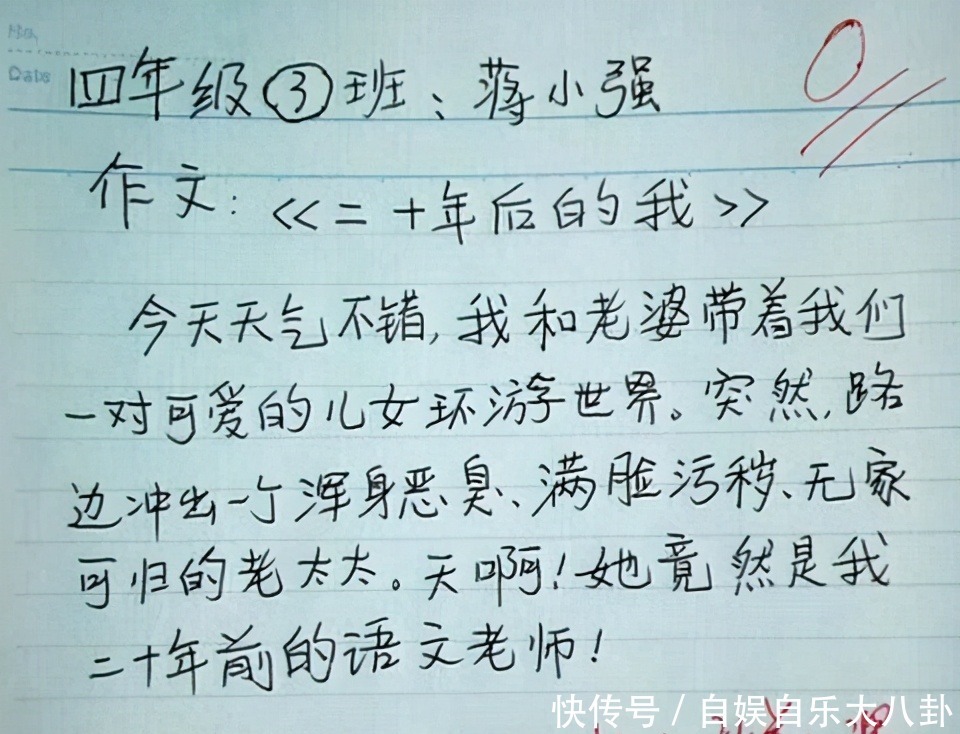 Date
四年级③班、蒋小强
0
作文:<<二十年后的我>>
今天天气不错,我和老婆带着我们
一对可爱的儿女环游世界。突然,路
边冲出一个浑身恶臭、满脸污秽、无家
可归的老太太。天啊!她竟然是我
二十年前的语文老师!
快传号/自娱自乐大八卦